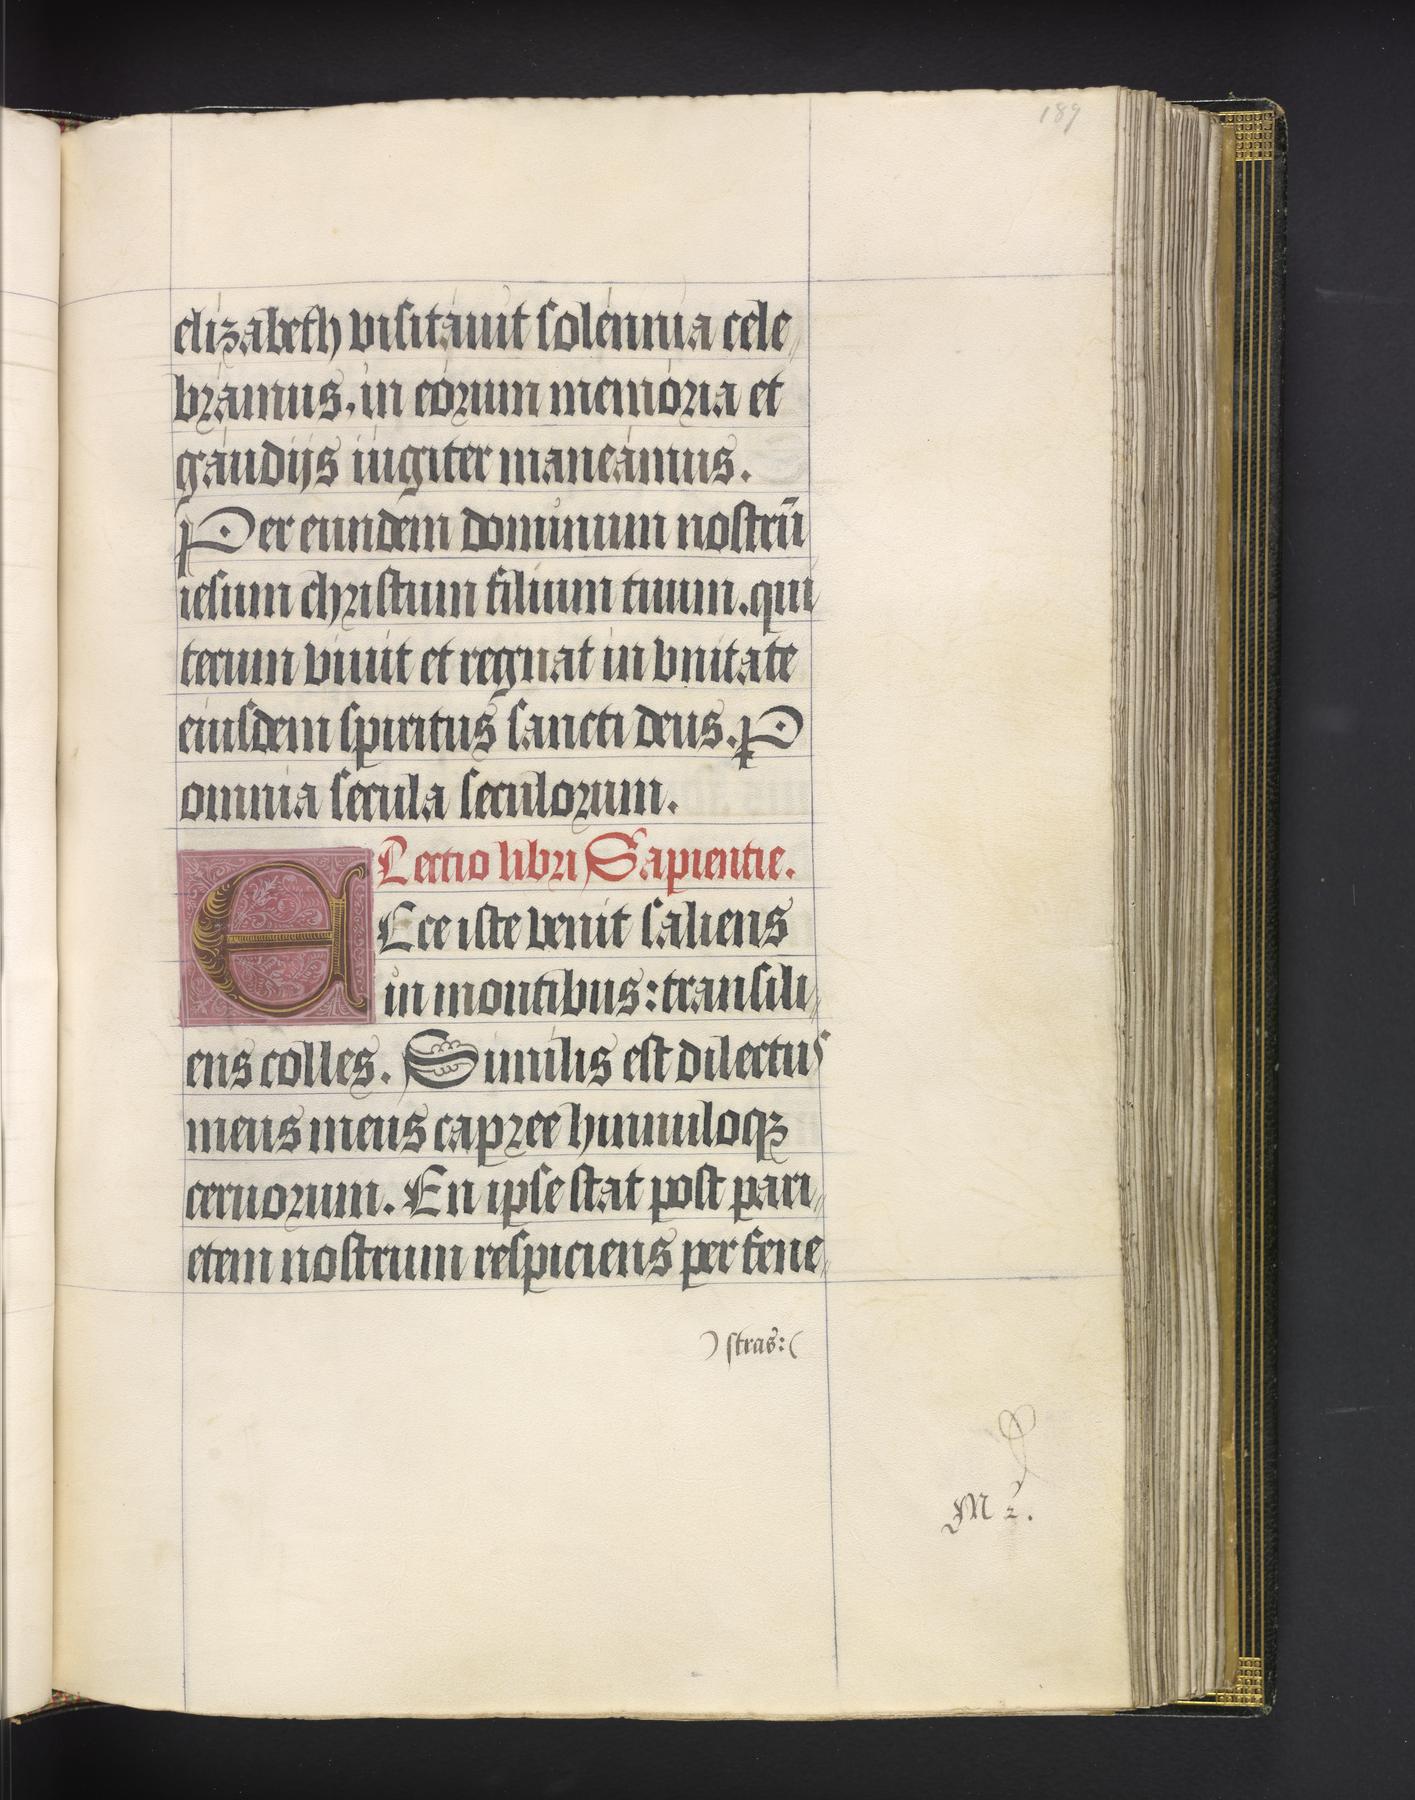 189
elizabeth visitauit solénnia cele
brámus, in eórum memória et
gáudijs iúgiter maneámus.
Per eundem dominum nostrū
iesum christum filium tuum. qui
tecum viuit et regnat in vnitate
eiusdem spiritus sancti deus. P
omnia secula seculorum.
Lectio libri Sapientie.
Ecce iste venit saliens
in montibus: transili
ens colles. Similis est dilectus
meus meus capree hinnuloqꝫ
ceruorum. En ipse stat post pari
etem nostrum respiciens per fene
stras:
M 2.